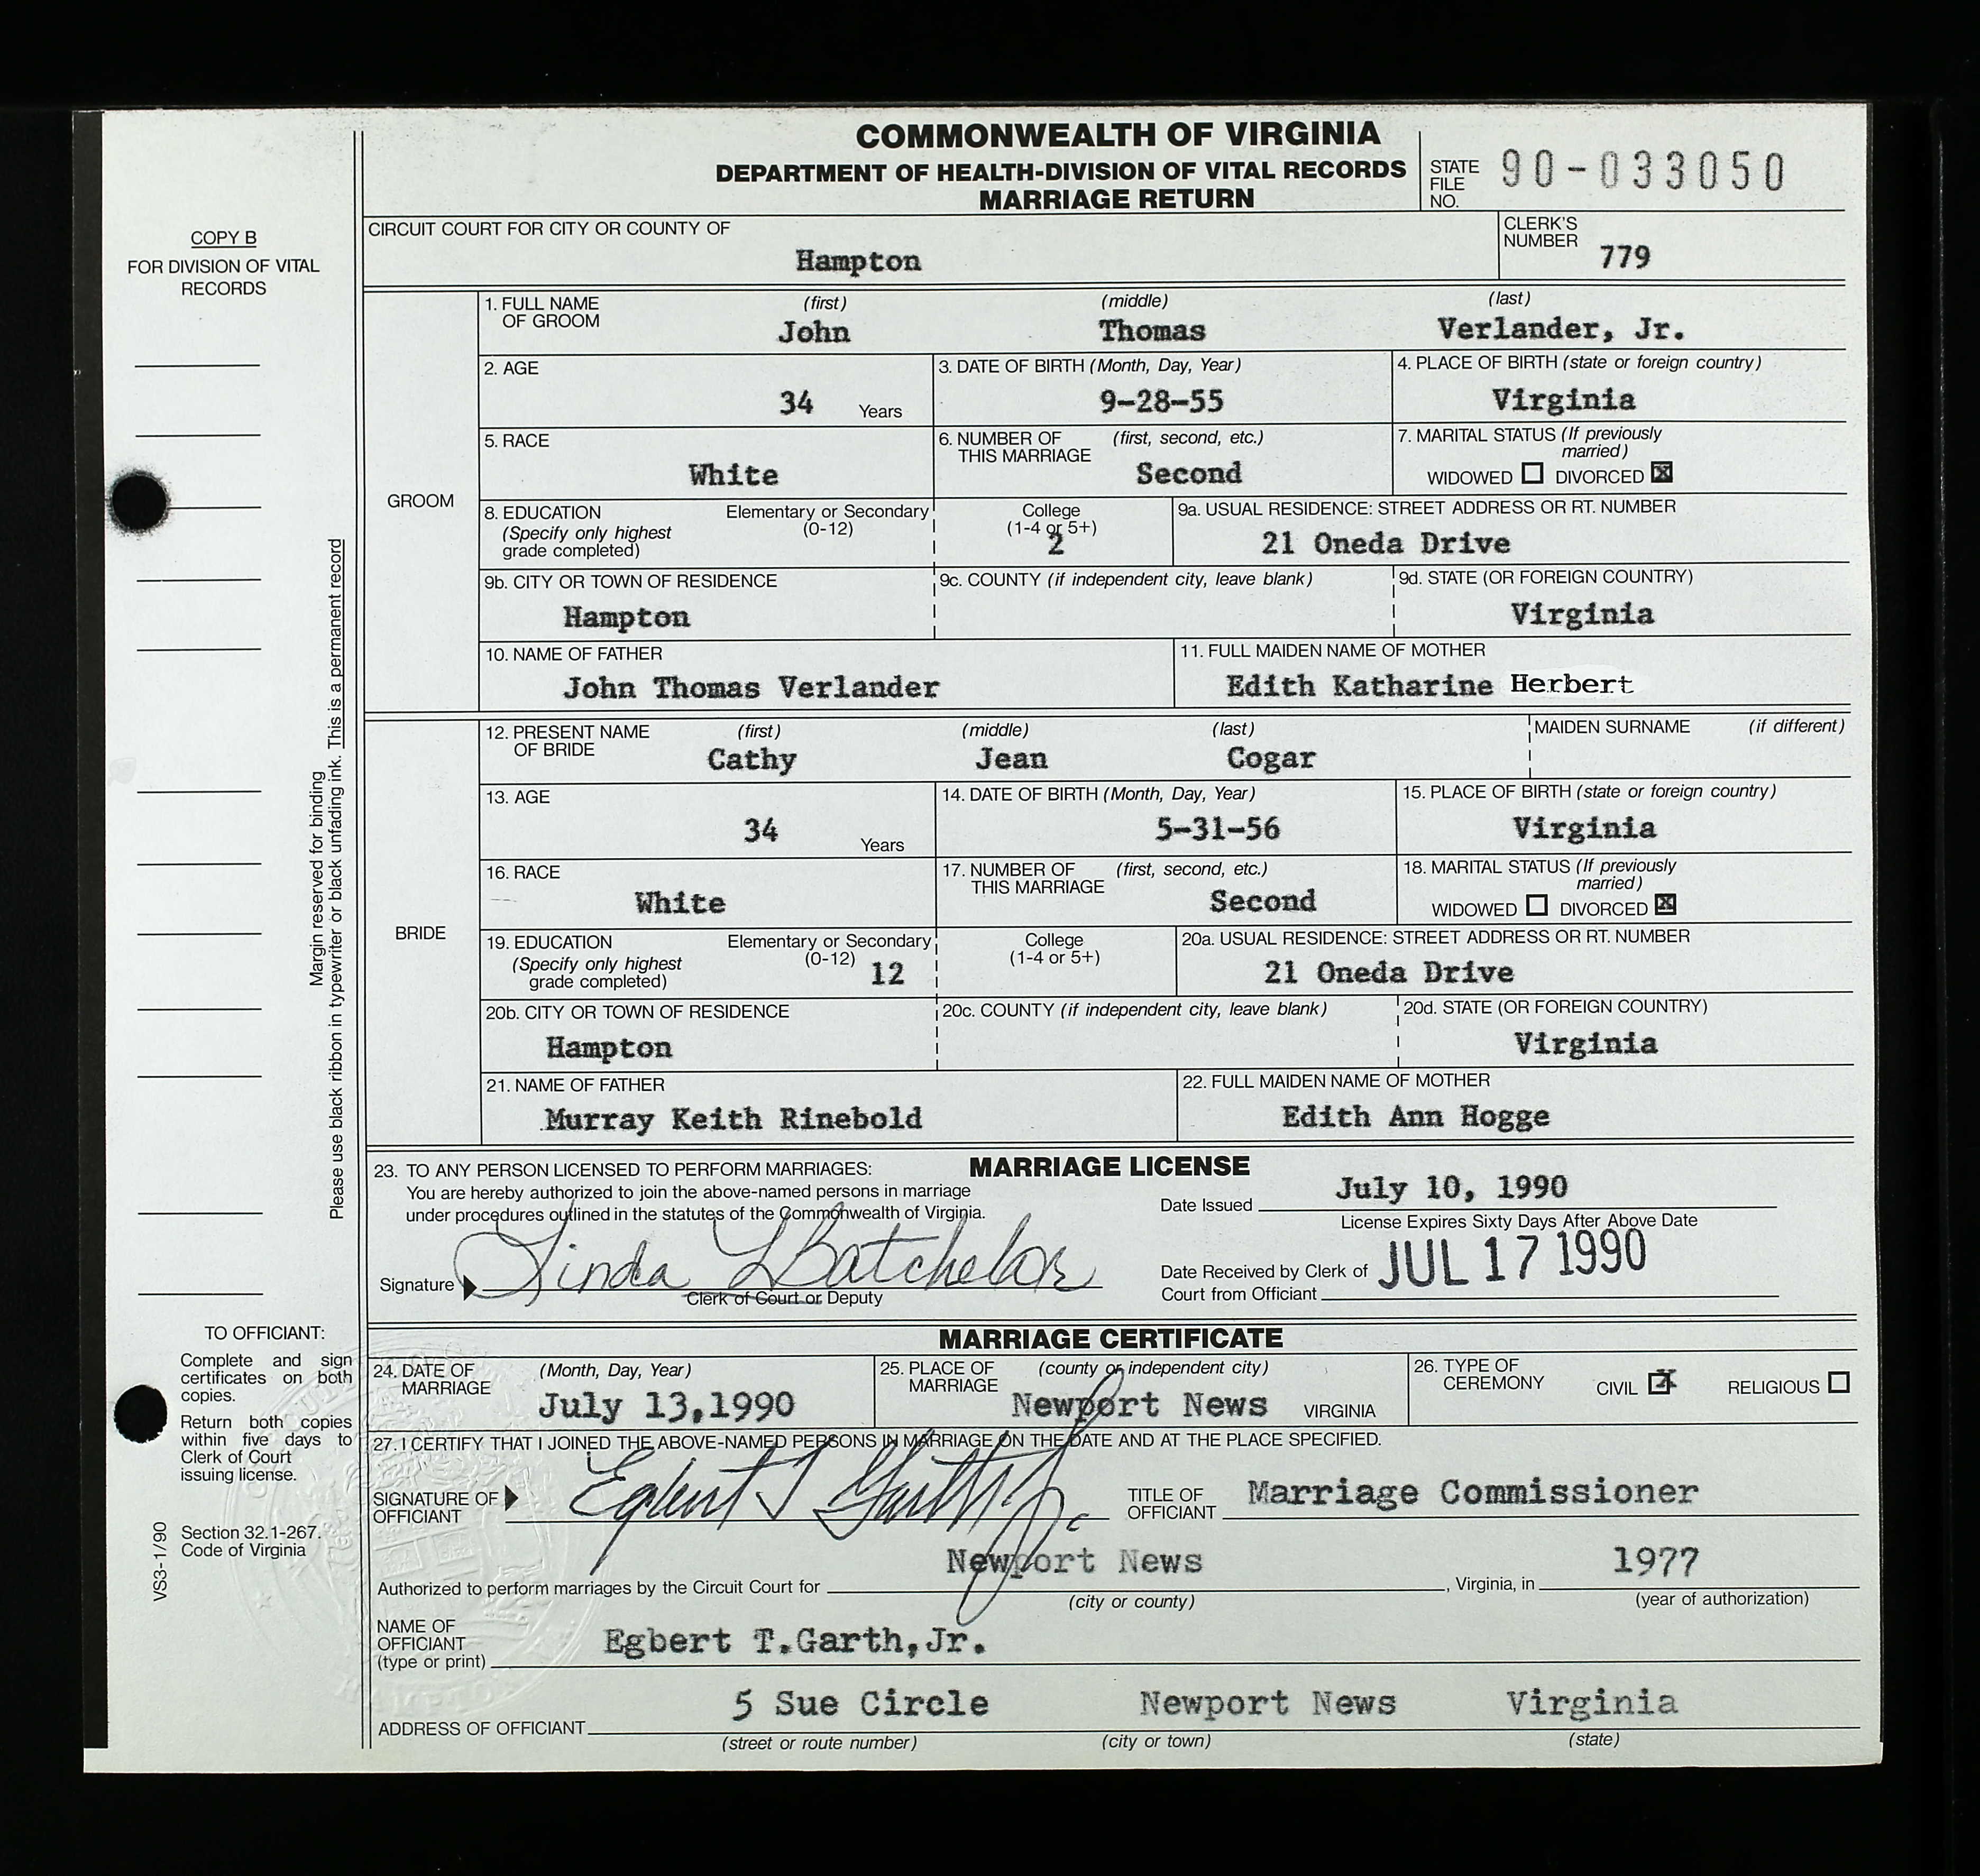 COMMONWEALTH OF VIRGINIA
DEPARTMENT OF HEALTH-DIVISION OF VITAL RECORDS
MARRIAGE RETURN
STATE FILE NO. 90-033050
COPY B
FOR DIVISION OF VITAL
RECORDS
Margin reserved for binding
Please use black ribbon in typewriter or black unfading ink. This is a permanent record
CIRCUIT COURT FOR CITY OR COUNTY OF
Hampton
CLERK'S NUMBER 779
GROOM
1. FULL NAME OF GROOM (first) (middle) (last)
John Thomas Verlander, Jr.
2. AGE
34 Years
3. DATE OF BIRTH (Month, Day, Year)
9-28-55
4. PLACE OF BIRTH (state or foreign country)
Virginia
5. RACE
White
6. NUMBER OF THIS MARRIAGE (first, second, etc.)
Second
7. MARITAL STATUS (If previously married)
WIDOWED DIVORCED X
8. EDUCATION (Specify only highest grade completed)
Elementary or Secondary (0-12)
College (1-4 or 5+)
2
9a. USUAL RESIDENCE: STREET ADDRESS OR RT. NUMBER
21 Oneda Drive
9b. CITY OR TOWN OF RESIDENCE
Hampton
9c. COUNTY (if independent city, leave blank)
9d. STATE (OR FOREIGN COUNTRY)
Virginia
10. NAME OF FATHER
John Thomas Verlander
11. FULL MAIDEN NAME OF MOTHER
Edith Katharine Herbert
BRIDE
12. PRESENT NAME OF BRIDE (first) (middle) (last)
Cathy Jean Cogar
MAIDEN SURNAME (if different)
13. AGE
34 Years
14. DATE OF BIRTH (Month, Day, Year)
5-31-56
15. PLACE OF BIRTH (state or foreign country)
Virginia
16. RACE
White
17. NUMBER OF THIS MARRIAGE (first, second, etc.)
Second
18. MARITAL STATUS (If previously married)
WIDOWED DIVORCED X
19. EDUCATION (Specify only highest grade completed)
Elementary or Secondary (0-12) 12
College (1-4 or 5+)
20a. USUAL RESIDENCE: STREET ADDRESS OR RT. NUMBER
21 Oneda Drive
20b. CITY OR TOWN OF RESIDENCE
Hampton
20c. COUNTY (if independent city, leave blank)
20d. STATE (OR FOREIGN COUNTRY)
Virginia
21. NAME OF FATHER
Murray Keith Rinebold
22. FULL MAIDEN NAME OF MOTHER
Edith Ann Hogge
23. TO ANY PERSON LICENSED TO PERFORM MARRIAGES: MARRIAGE LICENSE
You are hereby authorized to join the above-named persons in marriage
under procedures outlined in the statutes of the Commonwealth of Virginia.
Date Issued July 10, 1990
License Expires Sixty Days After Above Date
Signature Linda L Batchelor
Clerk of Court or Deputy
Date Received by Clerk of Court from Officiant JUL 17 1990
MARRIAGE CERTIFICATE
24. DATE OF MARRIAGE (Month, Day, Year)
July 13,1990
25. PLACE OF MARRIAGE (county or independent city)
Newport News VIRGINIA
26. TYPE OF CEREMONY CIVIL X RELIGIOUS
27. I CERTIFY THAT I JOINED THE ABOVE-NAMED PERSONS IN MARRIAGE ON THE DATE AND AT THE PLACE SPECIFIED.
SIGNATURE OF OFFICIANT Egbert T Garth Jr.
TITLE OF OFFICIANT Marriage Commissioner
Authorized to perform marriages by the Circuit Court for Newport News, Virginia, in 1977
(city or county) (year of authorization)
NAME OF OFFICIANT (type or print) Egbert T.Garth,Jr.
ADDRESS OF OFFICIANT 5 Sue Circle Newport News Virginia
(street or route number) (city or town) (state)
TO OFFICIANT:
Complete and sign
certificates on both
copies.
Return both copies
within five days to
Clerk of Court
issuing license.
Section 32.1-267.
Code of Virginia
VS3-1/90